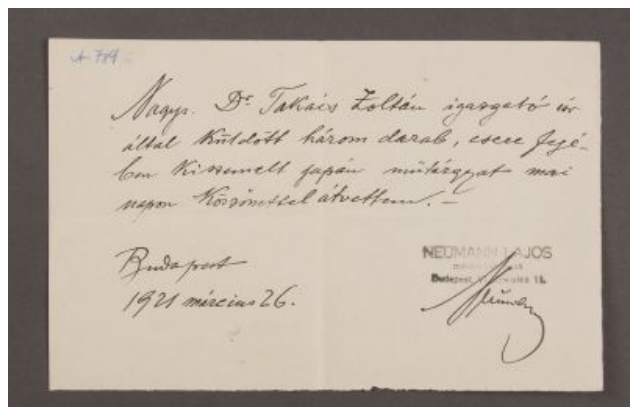 A. 789
Nagys. Dr Takács Zoltán igazgató úr
által küldött három darab, csere fejé-
ben kiszemelt japán műtárgyat mai
napon köszönettel átvettem. —
Budapest
1921 március 26.
NEUMANN LAJOS
Budapest,
Neumann